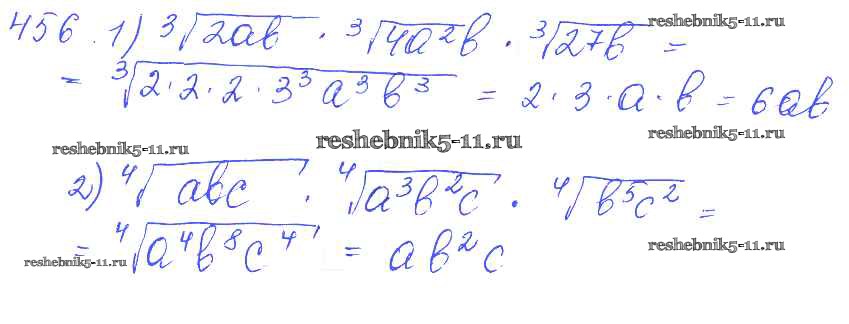 456. 1) ∛(2ab) · ∛(4a²b) · ∛(27b) =
reshebnik5-11.ru
= ∛(2·2·2·3³a³b³) = 2·3·a·b = 6ab
reshebnik5-11.ru
reshebnik5-11.ru
reshebnik5-11.ru
2) ∜(abc) · ∜(a³b²c) · ∜(b⁵c²) =
= ∜(a⁴b⁸c⁴) = ab²c
reshebnik5-11.ru
reshebnik5-11.ru